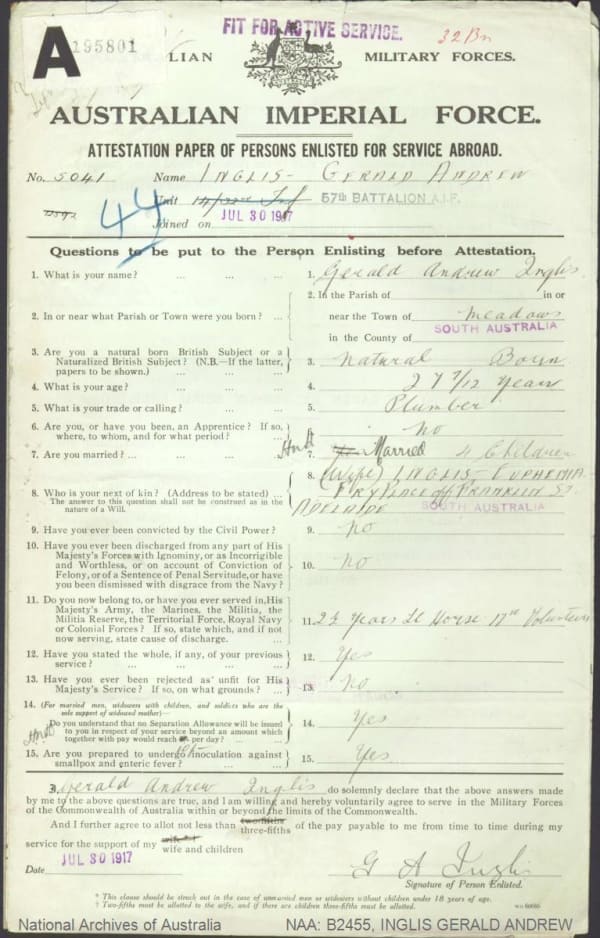 FIT FOR ACTIVE SERVICE.
32 Bn
A 195801
LIAN MILITARY FORCES.
AUSTRALIAN IMPERIAL FORCE.
ATTESTATION PAPER OF PERSONS ENLISTED FOR SERVICE ABROAD.
No. 5041 Name INGLIS - GERALD ANDREW
Unit 57TH BATTALION A.I.F.
44
Joined on JUL 30 1917
Questions to be put to the Person Enlisting before Attestation.
1. What is your name? ... ... ... 1. Gerald Andrew Inglis
2. In the Parish of in or
2. In or near what Parish or Town were you born? ... near the Town of Meadows
in the County of SOUTH AUSTRALIA
3. Are you a natural born British Subject or a
Naturalized British Subject? (N.B.—If the latter, 3. Natural Born
papers to be shown.) ... ... ...
4. What is your age? ... ... ... 4. 27 7/12 years
5. What is your trade or calling? ... ... 5. Plumber
6. Are you, or have you been, an Apprentice? If so,
where, to whom, and for what period? ... 6. No
7. Are you married? ... ... ... 7. Married 4 Children
8. (Wife) INGLIS - EUPHEMIA
8. Who is your next of kin? (Address to be stated) ... PLACE off FRANKLIN ST
The answer to this question shall not be construed as in the ADELAIDE SOUTH AUSTRALIA
nature of a Will.
9. Have you ever been convicted by the Civil Power? 9. No
10. Have you ever been discharged from any part of His
Majesty's Forces with Ignominy, or as Incorrigible
and Worthless, or on account of Conviction of 10. No
Felony, or of a Sentence of Penal Servitude, or have
you been dismissed with disgrace from the Navy?
11. Do you now belong to, or have you ever served in, His
Majesty's Army, the Marines, the Militia, the
Militia Reserve, the Territorial Force, Royal Navy 11. 2½ years Lt Horse 17th Volunteers
or Colonial Forces? If so, state which, and if not
now serving, state cause of discharge. ...
12. Have you stated the whole, if any, of your previous
service? ... ... ... 12. Yes
13. Have you ever been rejected as unfit for His
Majesty's Service? If so, on what grounds? ... 13. No
14. (For married men, widowers with children, and soldiers who are the
sole support of widowed mother)—
Do you understand that no Separation Allowance will be issued
to you in respect of your service beyond an amount which 14. Yes
together with pay would reach per day? ... ...
15. Are you prepared to undergo inoculation against
smallpox and enteric fever? ... ... 15. Yes
I, Gerald Andrew Inglis do solemnly declare that the above answers made
by me to the above questions are true, and I am willing and hereby voluntarily agree to serve in the Military Forces
of the Commonwealth of Australia within or beyond the limits of the Commonwealth.
And I further agree to allot not less than two-fifths three-fifths of the pay payable to me from time to time during my
service for the support of my wife and children
Date JUL 30 1917 G A Inglis
Signature of Person Enlisted.
* This clause should be struck out in the case of unmarried men or widowers without children under 18 years of age.
† Two-fifths must be allotted to the wife, and if there are children three-fifths must be allotted.
National Archives of Australia NAA: B2455, INGLIS GERALD ANDREW